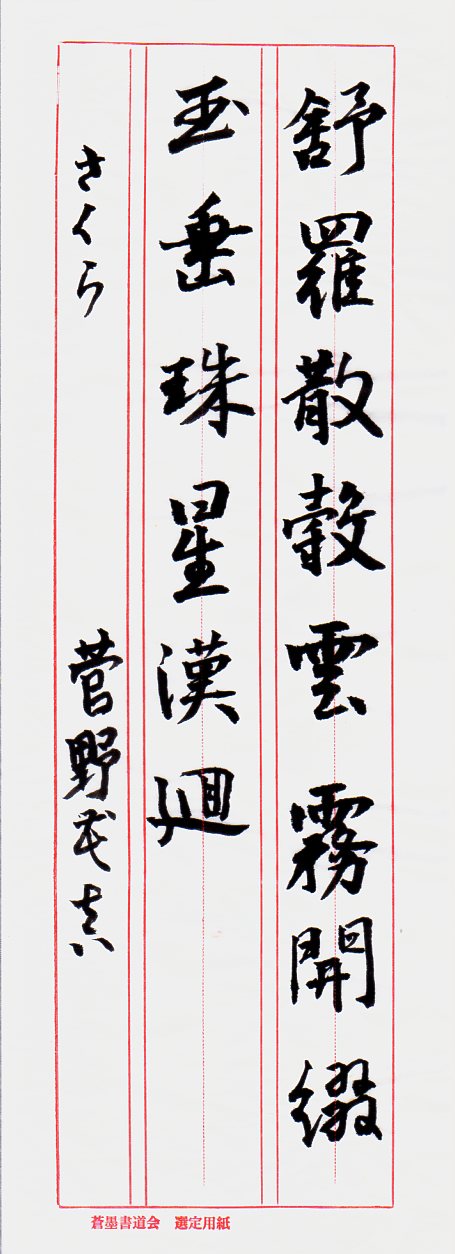 舒羅散縠雲霧開綴
玉垂珠星漢迴
さくら 菅野
蒼墨書道会 選定用紙